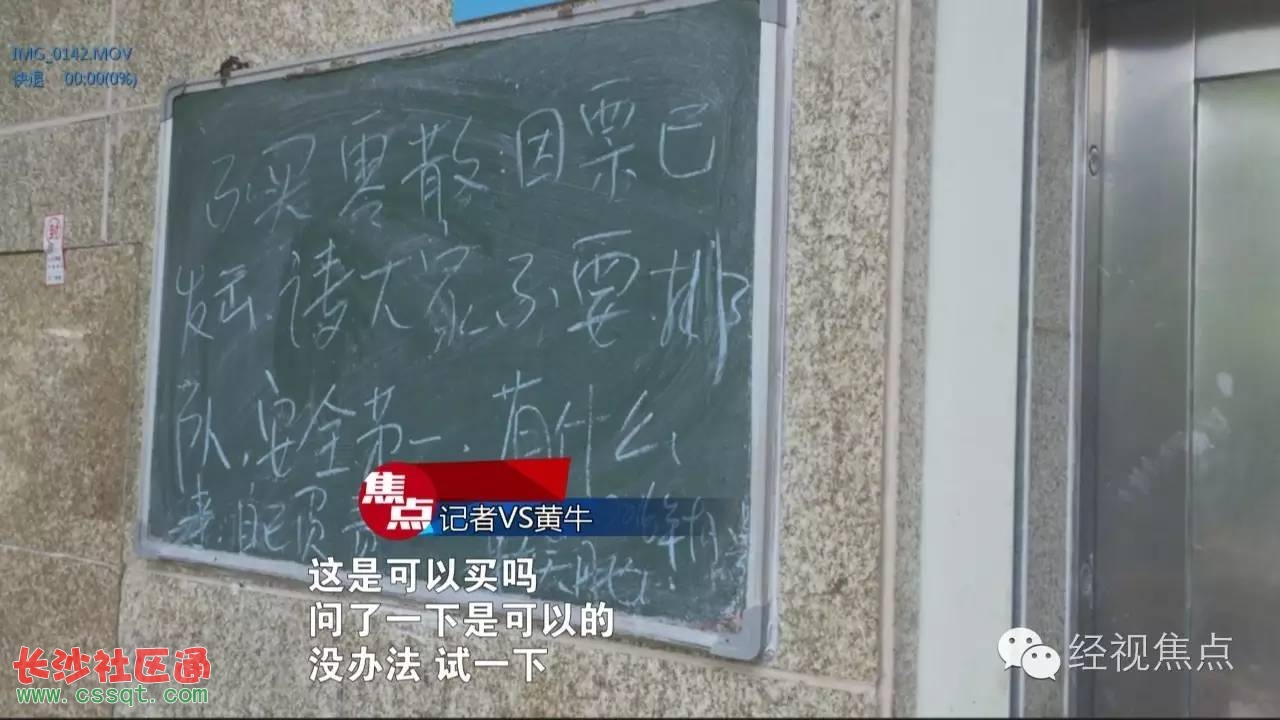 IMG_0142.MOV
快退 00:00(0%)
买零散.因票已
发击.请大家不要.排
队.安全第一.有什么
自配 负
焦点
记者VS黄牛
这是可以买吗
问了一下是可以的
没办法 试一下
长沙社区通
www.cssqt.com
经视焦点